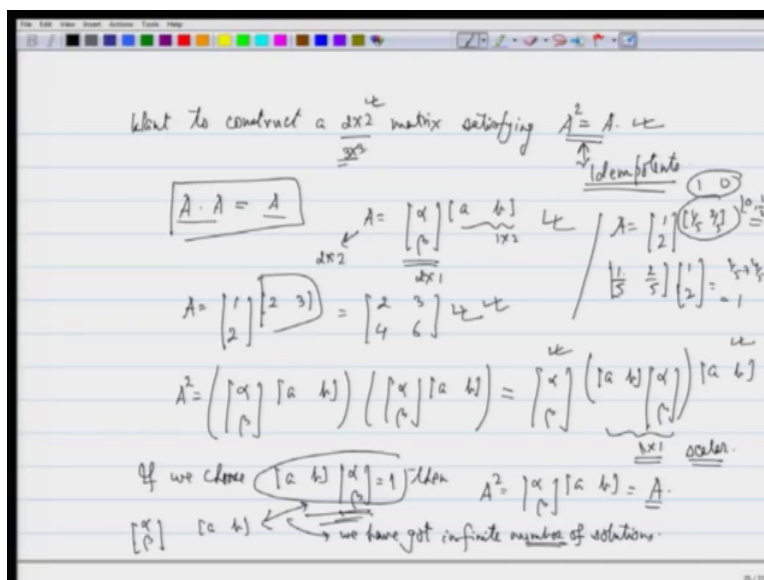 File Edit View Insert Actions Tools Help
Want to construct a 2x2 matrix satisfying A² = A.
3x3
Idempotents
1 0
A · A = A
A = [α β] [a b]
2x2
2x1
1x2
A = [1 2] [1/5 2/5]
[1/5 2/5] [1 2] = 1/5 + 4/5
= 1
A = [1 2] [2 3] = [2 3 4 6]
A² = ([α β] [a b]) ([α β] [a b]) = [α β] ([a b] [α β]) [a b]
1x1 scalar.
If we choose [a b] [α β] = 1 then A² = [α β] [a b] = A.
[α β] [a b] we have got infinite number of solutions.